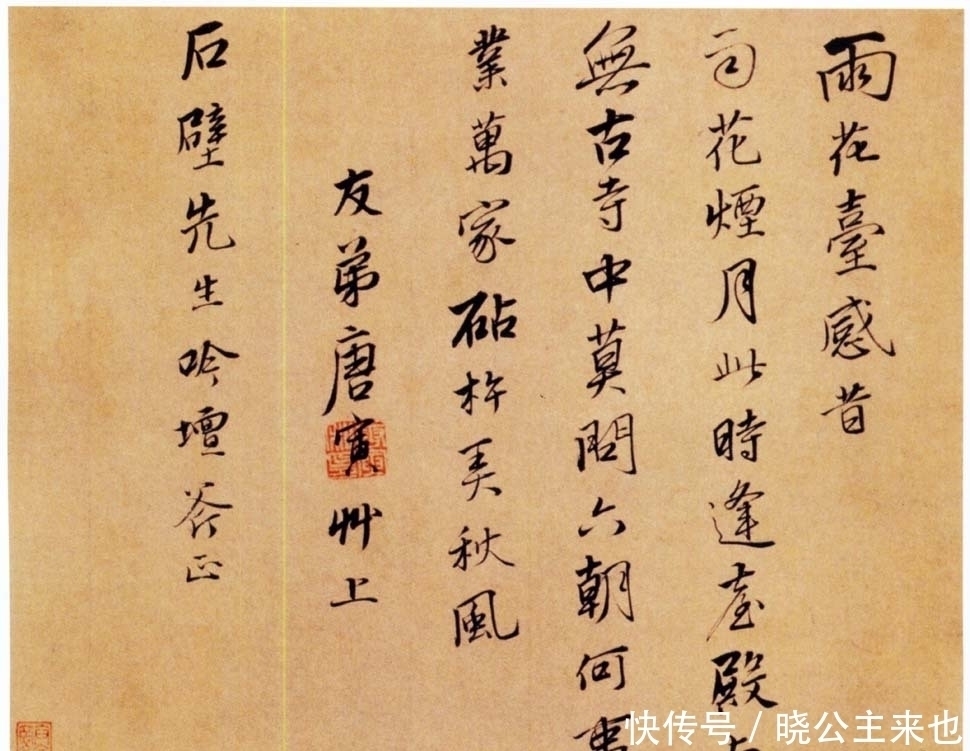 雨花臺感昔
雨花煙月此時逢臺殿
無古寺中莫問六朝何
業萬家砧杵弄秋風
友弟唐寅艸上
石壁先生吟壇斧正
快传号 / 晓公主来也